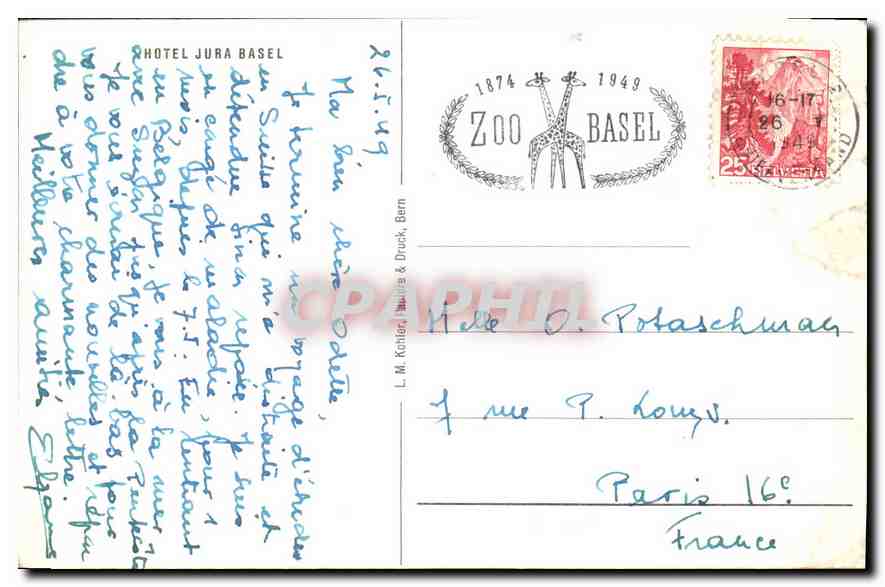 HOTEL JURA BASEL
26.5.49
Ma bien chère Odette,
Je termine un voyage d'études
en Suisse qui m'a distraite et
détendue sinon reposée. Je suis
en congé de maladie, pour 1
mois, depuis le 7.5. En rentrant
en Belgique, je vais à la mer
avec jusqu'après la Pentecôte
Je vous écrirai de là-bas pour
vous donner des nouvelles et répon
dre à votre charmante lettre.
Meilleures amitiés
L. M. Kohler, & Druck, Bern
1874 1949
ZOO BASEL
16-17
26
1949
25 HELVETIA
CPAPHIL
Melle O. Potaschman
7 rue P. Louys.
Paris 16e
France